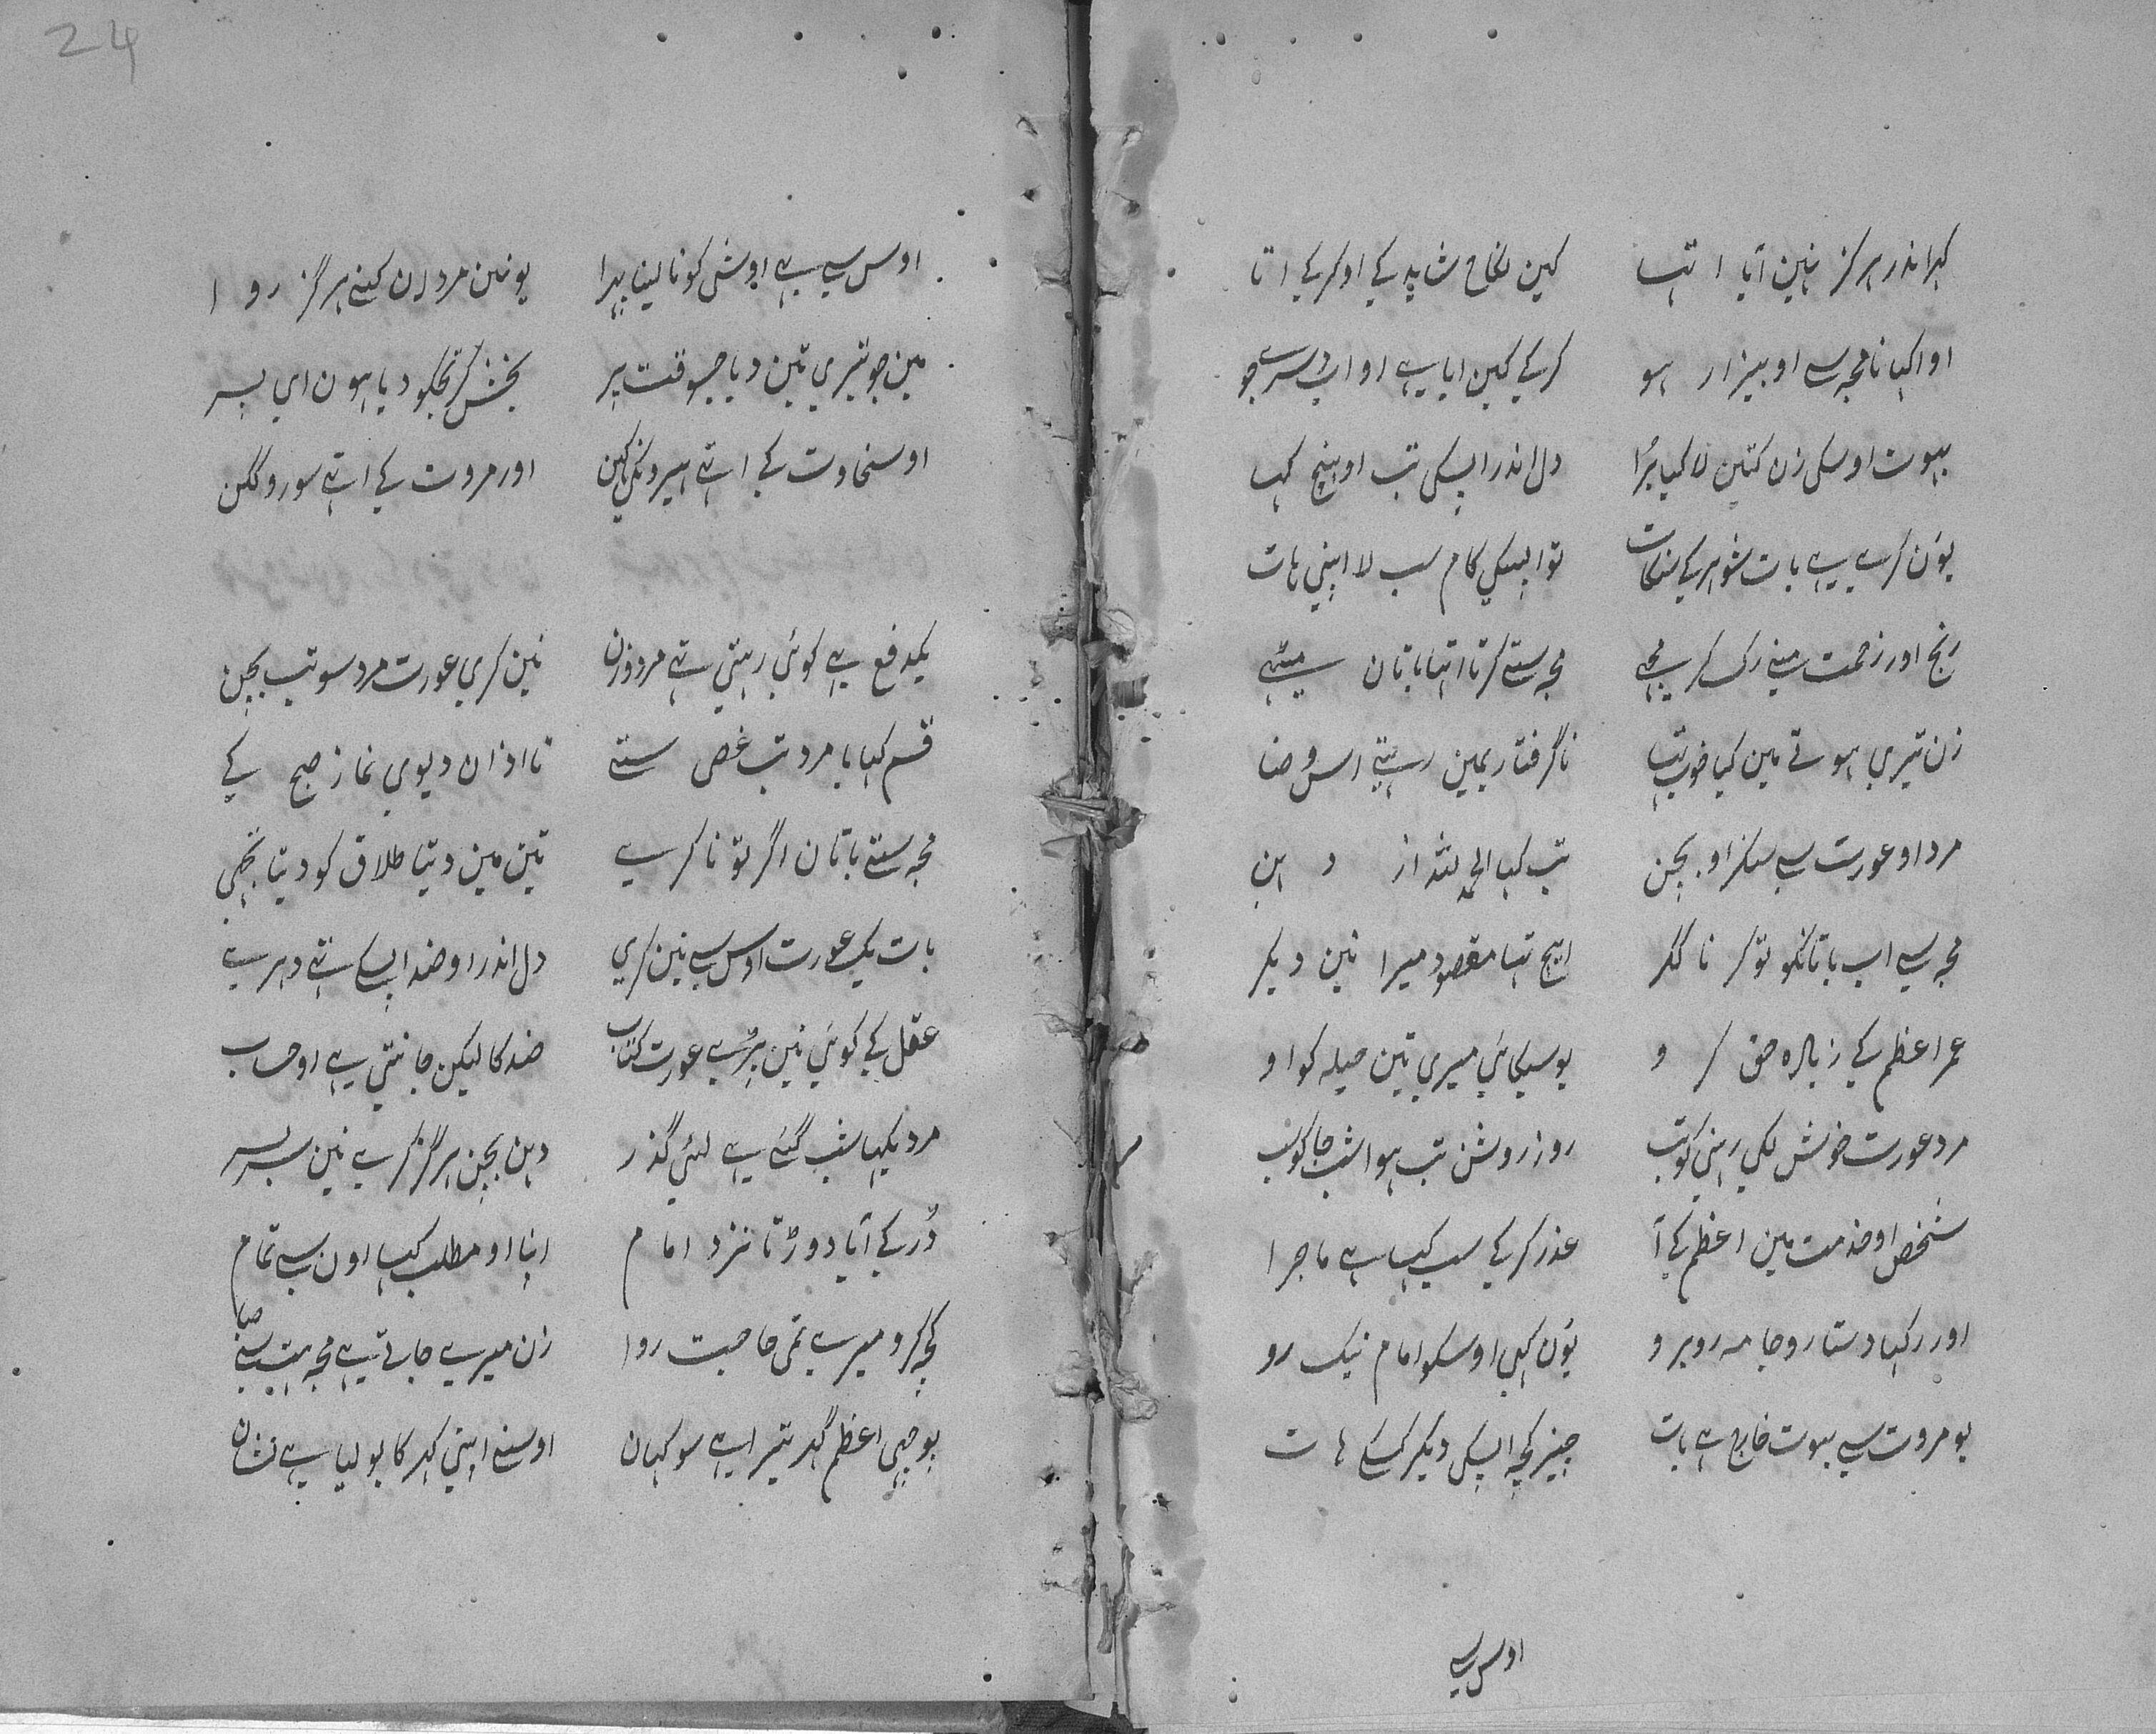 گہر اندر ہرگز نہین آیا اتہا کہین نکاح شاید کے اوکر کے اتا
او اکیا نا مجہ سے او بیزار ہو کرکے کہین ایا ہے او اب دسرے جو
بہوت اوسکی زن کتین لا کیا بُرا دل اندر اپسکی تب اوہنچ کہا
یوُن کرے ہے بات شوہر کے سنگات تو اپسکے کام سب لا اپنی ہات
رنج اور زحمت مینے رک کر مجے مجہ ستے کرتا اتہا باتان میٹہے
زن تیری ہوتے مین کیا خوب تہا نا گرفتاریمین رہتے اس وضا
مرد او عورت سے سنکر او بچن تب کہا الحمد للہ از دہن
مجہ سے اب باتانکو توکر نا ککر ایہچ تہا مقصود میرا نین دیکر
عمر اعظم کے زیادہ حق کرو یو سیکائے میری تین حیلہ کو او
مرد عورت خوش لگی رہنی کو تب روز روشن تب ہوا شب جا کو سب
شخص او خدمت مین اعظم کے آ عذر کرکے سب کہا ہے ماجرا
اور رکہا دستار و جامہ روبرو یوُن کہی اوسکو امام نیک رو
یو مروت سے بہوت خارج ہے بات چیز کچہ اپسکی دیکر کسکے ہات
اوس سے
24
اوس سے ہے اوش کو نا لینا پہرا یو نین مردان کنے ہرگز روا
مین جو تیری تین دیا جسوقت پر بخش کر تجکو دیا ہون ای پسر
او سخاوت کے اتہے ہیرونکی کہین اور مروت کے اتہے سور و گگن
یکدفع ہے کوئی رہتے تہے مرد و زن نین کری عورت مرد سو تب بچن
قسم کہایا مرد تب غصی ستے تا اذان دیوی نماز صبح کے
مجہ ستے باتان اگر تو نا کرے تین مین دیتا طلاق کو دیتا تجہی
بات یک عورت اوس سے نین کری دل اندر او ضد اپسکے تہے دہرے
عقل کے کوئی نین پڑے عورت کتاب ضد کا لیکن جانتی ہے او حساب
مرد یکہا شب گئے ہے لئی گذر دہن بچن ہرگز کرے نین سر بسر
دُر کے آیا دوڑتا نزد امام اپنا او مطلب کہا اون سے تمام
کچہ کرو میرے تمی حاجت روا زن میرے جاتے ہے مجہ ہت سے
پوچہی اعظم گہر تیرا ہے سو کہان اوسنے اپنی گہر کا بولیا ہے نشان